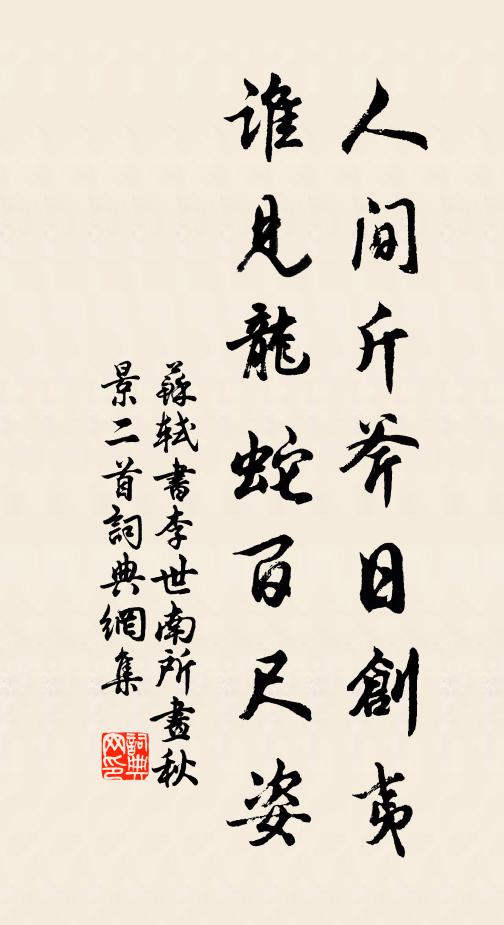 人間斤斧日創夷
誰見龍蛇百尺姿
蘇軾書李世南所畫秋
景二首詞典網集
詞典网印